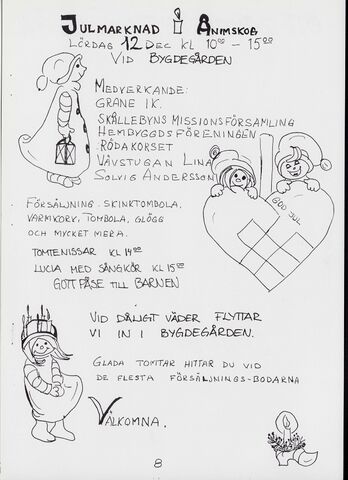 JULMARKNAD i ÅNIMSKOG
LÖRDAG 12 DEC KL 10⁰⁰ - 15⁰⁰
VID BYGDEGÅRDEN
MEDVERKANDE:
GRANE I.K.
SKÅLLEBYNS MISSIONSFÖRSAMLING
HEMBYGDSFÖRENINGEN
RÖDAKORSET
VÄVSTUGAN LINA
SOLVIG ANDERSSON
GOD JUL
FÖRSÄLJNING. SKINKTOMBOLA,
VARMKORV, TOMBOLA, GLÖGG
OCH MYCKET MERA.
TOMTENISSAR KL 14⁰⁰
LUCIA MED SÅNGKÖR KL 15⁰⁰
GOTTPÅSE TILL BARNEN
VID DÅLIGT VÄDER FLYTTAR
VI IN I BYGDEGÅRDEN.
GLADA TOMTAR HITTAR DU VID
DE FLESTA FÖRSÄLJNINGS-BODARNA
VÄLKOMNA.
8